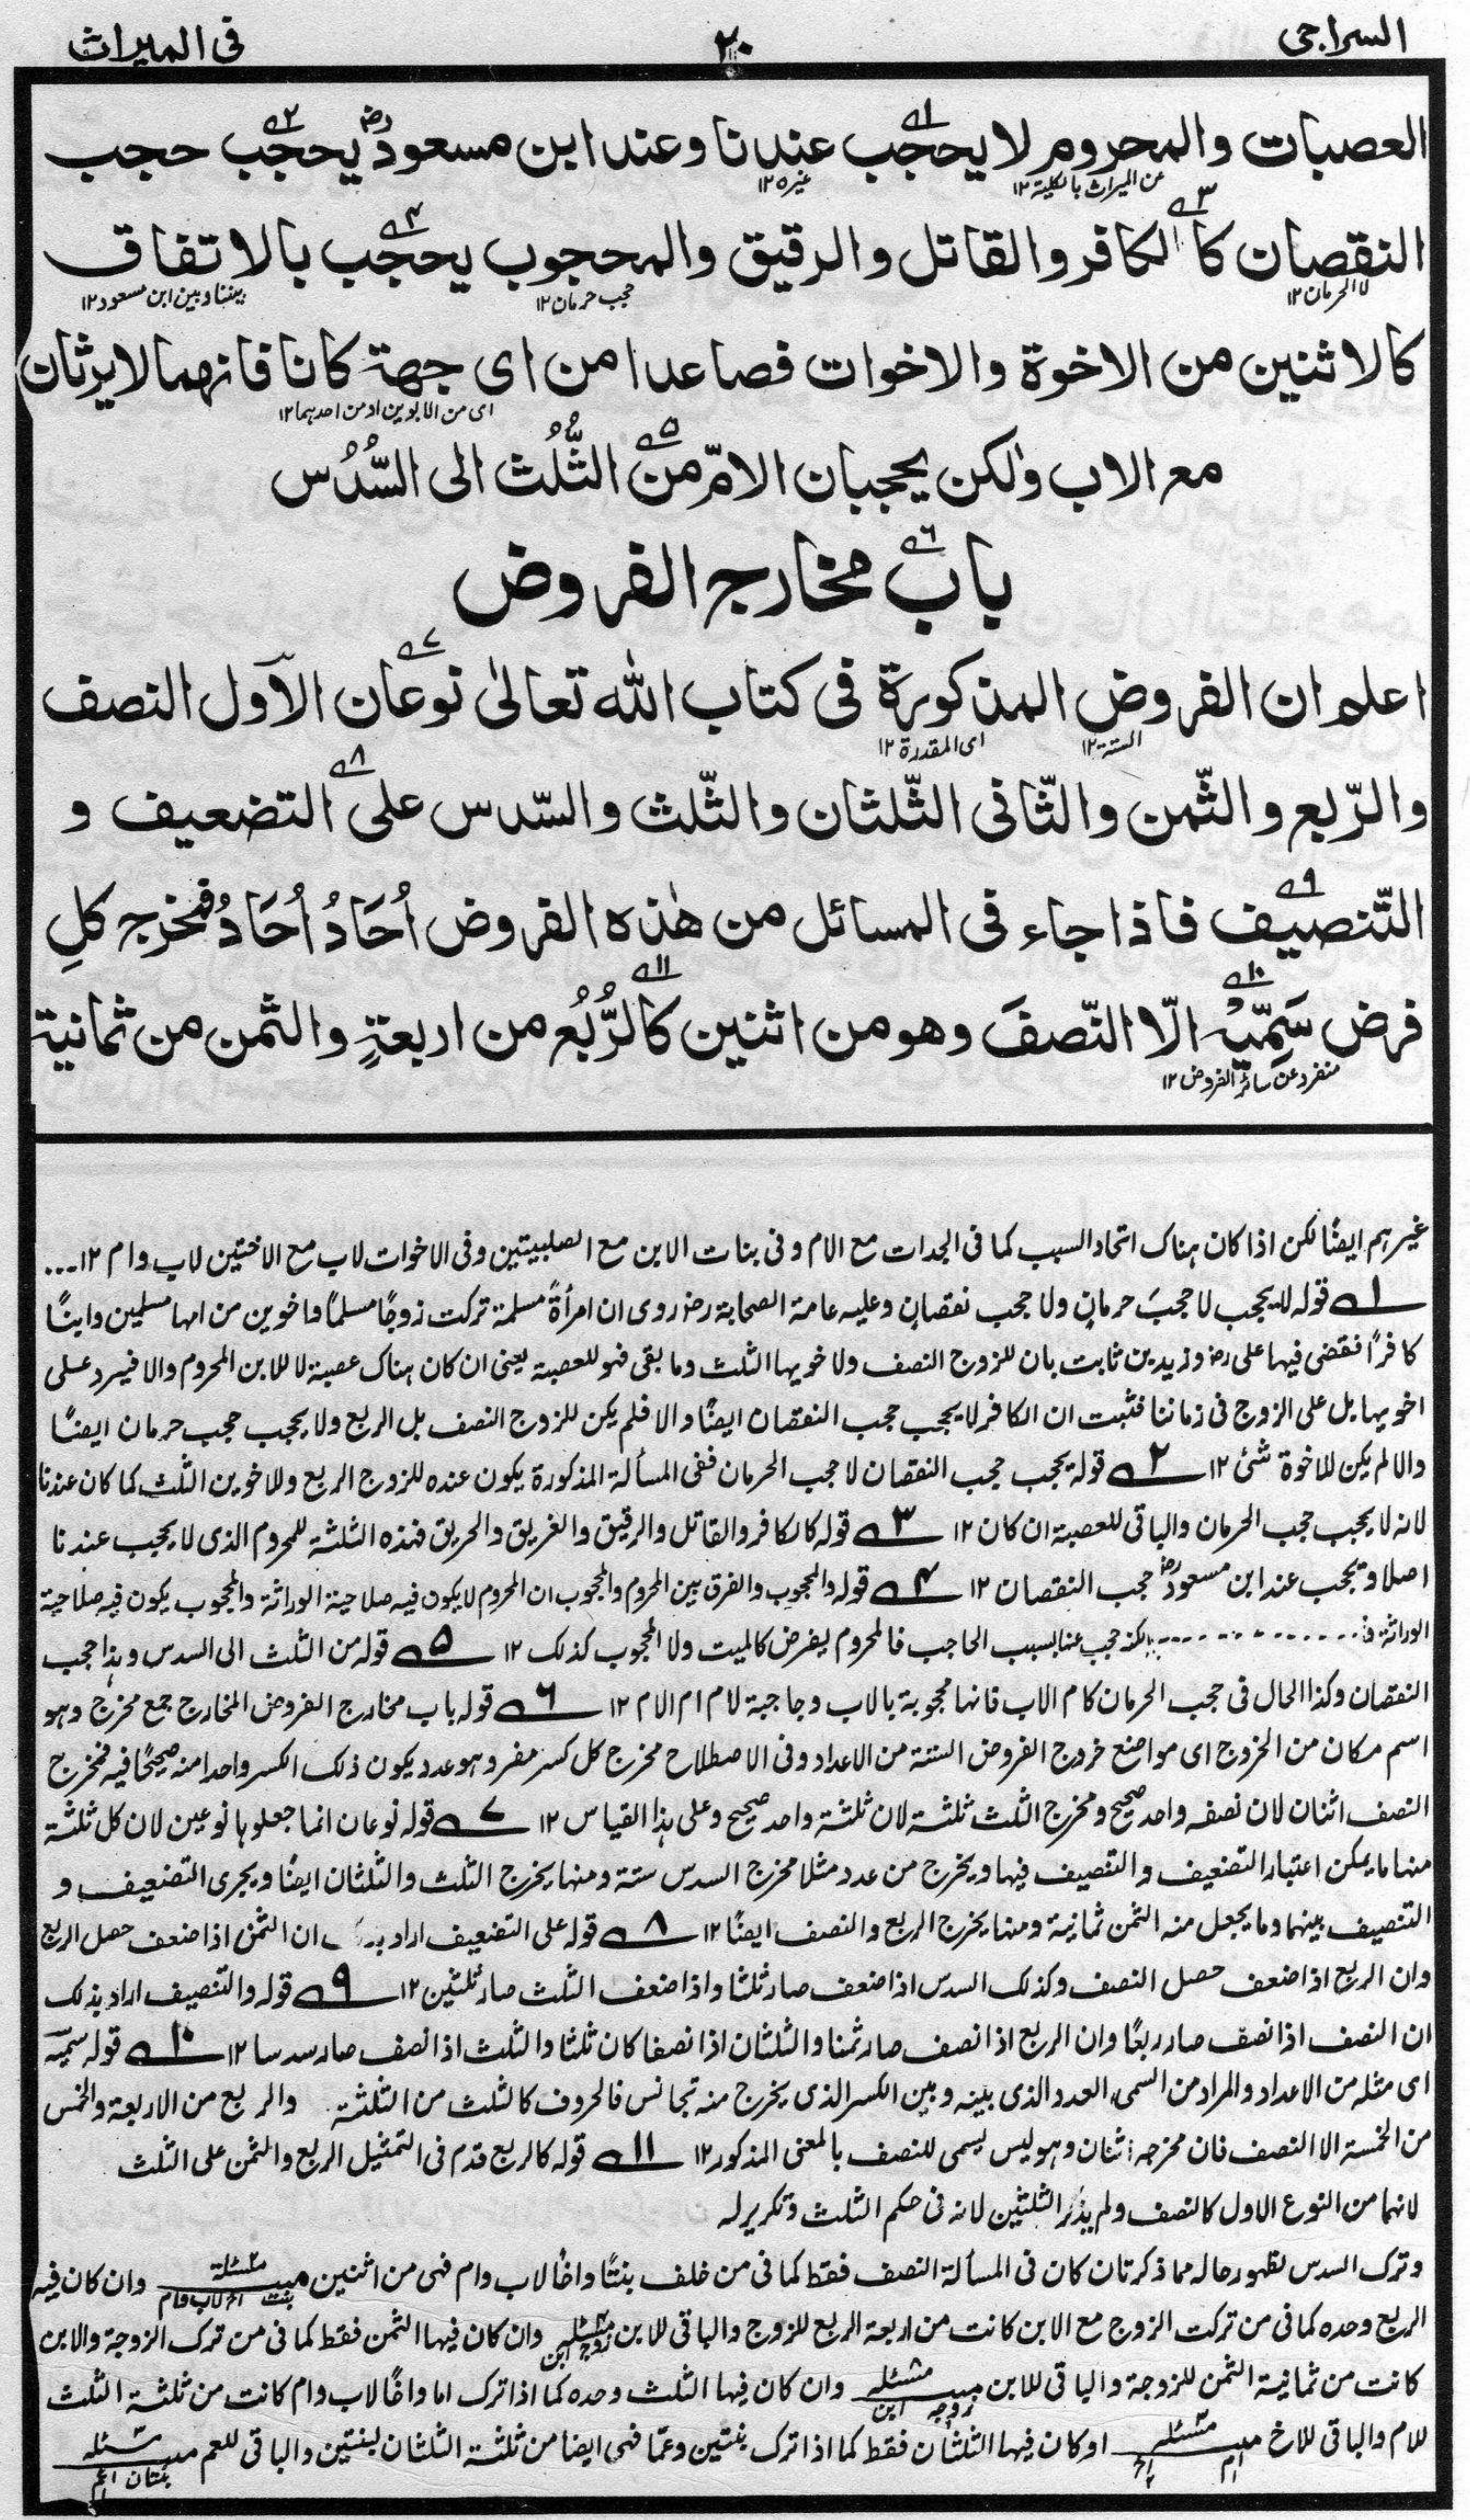 السراجى ٢٠ فى الميراث
العصبات والمحروم لا يحجب عندنا وعند ابن مسعودؓ يحجب حجب
عن الميراث بالكلية١٢ غيره١٢
النقصان كالكافر والقاتل والرقيق والمحجوب يحجب بالاتفاق
لا الحرمان١٢ حجب حرمان١٢ بيننا وبين ابن مسعود١٢
كالاثنين من الاخوة والاخوات فصاعدا من اى جهة كانا فانهما لا يرثان
اى من الابوين او من احدهما١٢
مع الاب ولٰكن يحجبان الامّ من الثُّلُث الى السُّدُس
باب مخارج الفروض
اعلم ان الفروض المذكورة فى كتاب الله تعالىٰ نوعان الاَول النصف
الستة١٢ اى المقدرة١٢
والرّبع والثّمن والثّانى الثّلثان والثّلث والسّدس على التضعيف و
التّنصيف فاذا جاء فى المسائل من هٰذه الفروض اُحَادُ اُحَادُ فمخرج كلِ
فرض سَمِيّهُ الّا النّصفَ وهو من اثنين كالرُّبُع من اربعةٍ والثمن من ثمانية
منفرد عن سائر الفروض١٢
غيرهم ايضًا لكن اذا كان هناك اتحاد السبب كما فى الجدات مع الام وفى بنات الابن مع الصلبيتين وفى الاخوات لاب مع الاختين لاب وام ١٢...
١ قوله لا يحجب لا حجبَ حرمانٍ ولا حجب نقصانٍ وعليه عامة الصحابة رض روى ان امرأةً مسلمة تركت زوجًا مسلمًا واخوين من امها مسلمين وابنًا
كافرًا فقضى فيها على رض وزيد بن ثابت بان للزوج النصف ولاخويها الثلث وما بقى فهو للعصبة يعنى ان كان هناك عصبة لا للابن المحروم والا فيرد على
اخويها بل على الزوج فى زماننا فثبت ان الكافر لا يحجب حجب النقصان ايضًا والا فلم يكن للزوج النصف بل الربع ولا يحجب حجب حرمان ايضًا
والا لم يكن للاخوة شئ ١٢ ٢ قوله يحجب حجب النقصان لا حجب الحرمان ففى المسألة المذكورة يكون عنده للزوج الربع وللاخوين الثلث كما كان عندنا
لانه لا يحجب حجب الحرمان والباقى للعصبة ان كان ١٢ ٣ قوله كالكافر والقاتل والرقيق والغريق والحريق فهذه الثلثة للمحروم الذى لا يحجب عندنا
اصلا ويحجب عند ابن مسعودؓ حجب النقصان ١٢ ٤ قوله والمحجوب والفرق بين المحروم والمحجوب ان المحروم لا يكون فيه صلاحية الوراثة والمحجوب يكون فيه صلاحية
الوراثة لكنه حجب عنها بسبب الحاجب فالمحروم يفرض كالميت ولا المحجوب كذلك ١٢ ٥ قوله من الثلث الى السدس وهذا حجب
النقصان وكذا الحال فى حجب الحرمان كام الاب فانها محجوبة بالاب وحاجبة لام ام الام ١٢ ٦ قوله باب مخارج الفروض المخارج جمع مخرج وهو
اسم مكان من الخروج اى مواضع خروج الفروض الستة من الاعداد وفى الاصطلاح مخرج كل كسر مفرد هو عدد يكون ذلك الكسر واحدا منه صحيحًا فيه فمخرج
النصف اثنان لان نصفه واحد صحيح ومخرج الثلث ثلثة لان ثلثة واحد صحيح وعلى هذا القياس ١٢ ٧ قوله نوعان انما جعلوها نوعين لان كل ثلثة
منها ما يمكن اعتبار التضعيف والتنصيف فيها ويخرج من عدد مثلا مخرج السدس ستة ومنها يخرج الثلث والثلثان ايضًا ويجرى التضعيف و
التنصيف بينهما وما يجعل منه الثمن ثمانية ومنها يخرج الربع والنصف ايضًا ١٢ ٨ قوله على التضعيف اراد ان الثمن اذا ضعف حصل الربع
وان الربع اذا ضعف حصل النصف وكذلك السدس اذا ضعف صار ثلثا واذا ضعف الثلث صار ثلثين ١٢ ٩ قوله والتنصيف اراد بذلك
ان النصف اذا نصف صار ربعًا وان الربع اذا نصف صار ثمنا والثلثان اذا نصفا كان ثلثا والثلث اذا نصف صار سدسا ١٢ ١٠ قوله سميّه
اى مثله من الاعداد والمراد من السمى العدد الذى بينه وبين الكسر الذى يخرج منه تجانس فالحروف كالثلث من الثلثة والربع من الاربعة والخمس
من الخمسة الا النصف فان مخرجه اثنان وهو ليس يسمى للنصف بالمعنى المذكور ١٢ ١١ قوله كالربع قدم فى التمثيل الربع والثمن على الثلث
لانهما من النوع الاول كالنصف ولم يذكر الثلثين لانه فى حكم الثلث وتكرير له
وترك السدس لظهور حاله مما ذكر تان كان فى المسألة النصف فقط كما فى من خلف بنتًا واخًا لاب وام فهى من اثنين وان كان فيه
الربع وحده كما فى من تركت الزوج مع الابن كانت من اربعة الربع للزوج والباقى للابن وان كان فيها الثمن فقط كما فى من ترك الزوجة والابن
كانت من ثمانية الثمن للزوجة والباقى للابن وان كان فيها الثلث وحده كما اذا ترك اما واخًا لاب وام كانت من ثلثة الثلث
للام والباقى للاخ او كان فيها الثلثان فقط كما اذا ترك بنتين وعمًا فهى ايضا من ثلثة الثلثان لبنتين والباقى للعم